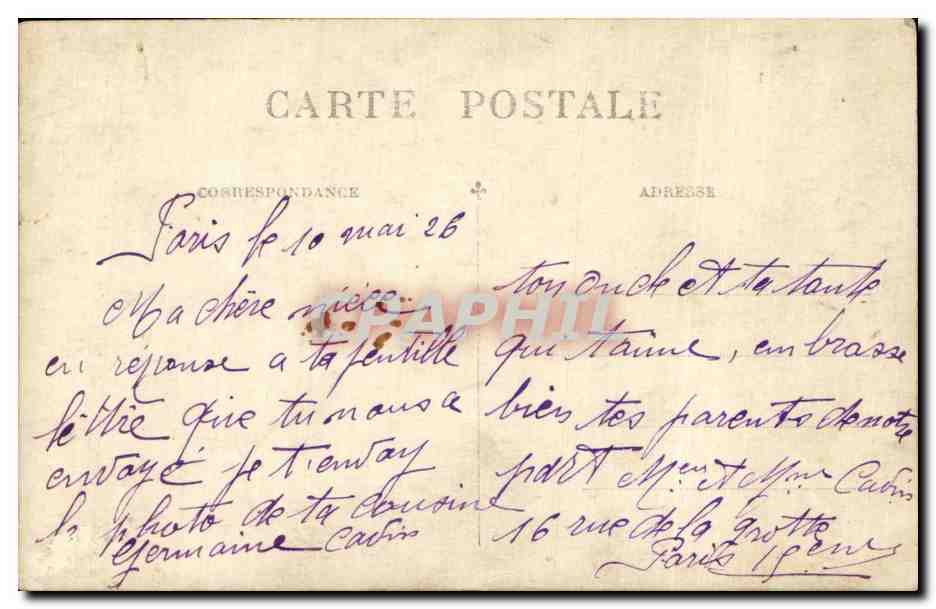 CARTE POSTALE
CORRESPONDANCE
ADRESSE
Paris le 10 mai 26
Ma chère nièce
en réponse a ta gentille
lettre que tu nous a
envoyé je t'envoy
la photo de ta cousine
Germaine Cavin
ton oncle et ta tante
qui t'aime, embrasse
bien tes parents de notre
part Meur et Mme Cavin
16 rue de la grotte
Paris 15eme
CPAPHIL